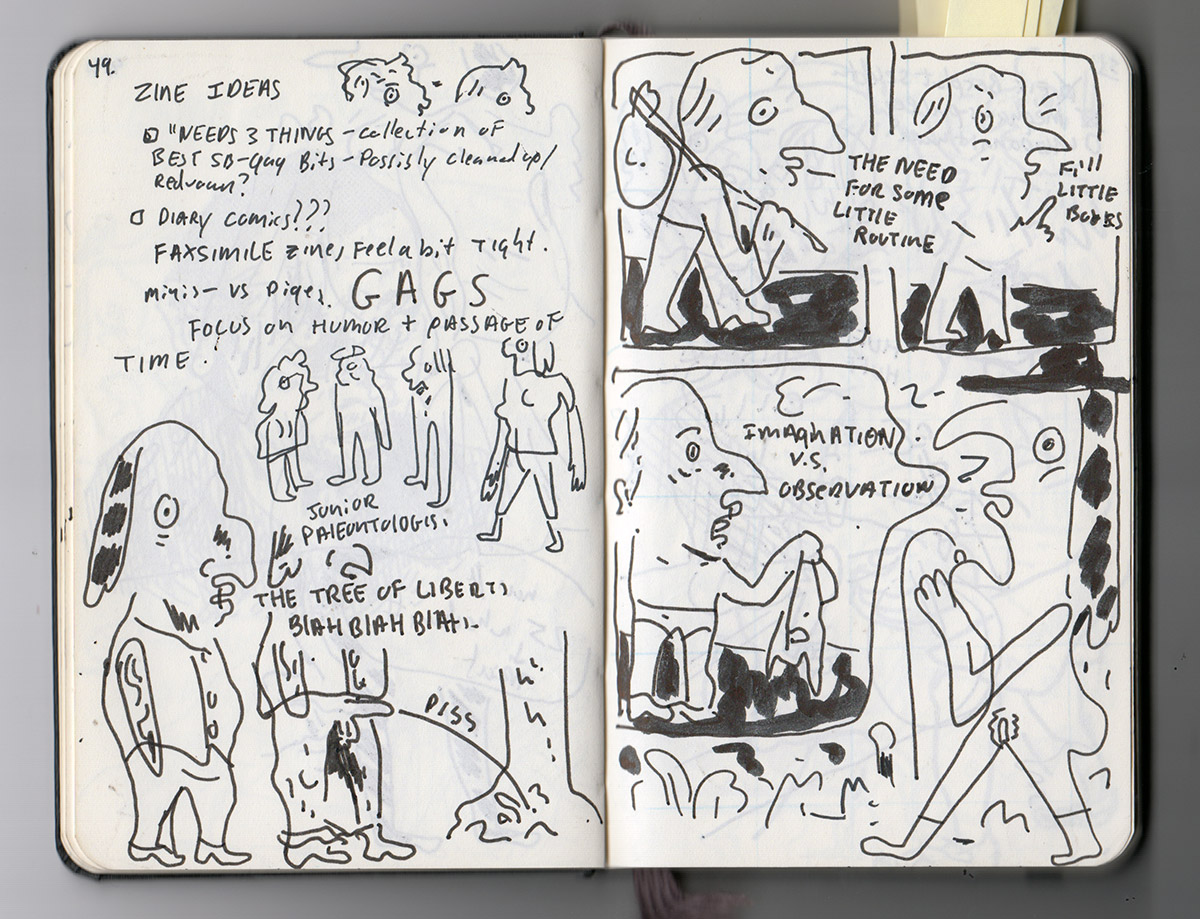 49.
ZINE IDEAS
"NEEDS 3 THINGS - collection of
BEST SB-gag Bits - Possibly cleaned up/
Redrawn?
DIARY comics???
FAXSIMILE zine, Feel a bit TIGHT.
minis- vs
GAGS
FOCUS on HUMOR + PASSAGE OF
TIME.
JUNIOR
PALEONTOLOGIS.
THE TREE OF LIBERTY
BLAH BLAH BLAH-
PISS
L.
THE NEED
FOR some
LITTLE
ROUTINE
Fill
LITTLE
BOXES
IMAGINATION
V.S.
OBSERVATION